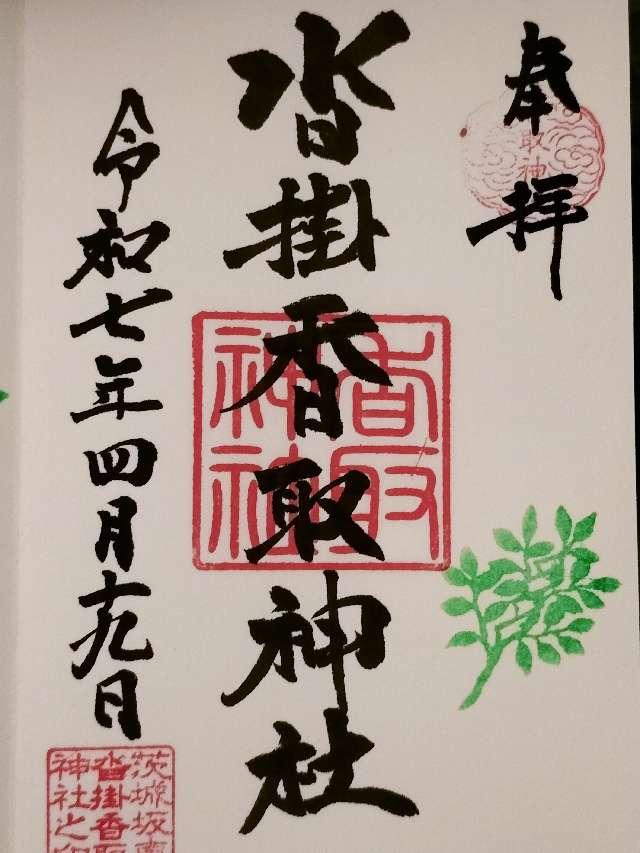 奉拝
取神
沓掛香取神社
香取
神社
令和七年四月十九日
茨城坂東
沓掛香取
神社之印